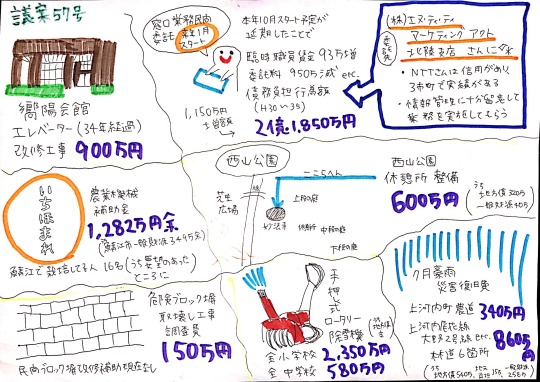 議案57号
嚮陽会館
エレベーター(34年経過)
改修工事 900万円
窓口業務民間
委託 来年1月
スタート
本年10月スタート予定が
延期したことで
臨時職員賃金 93万増
委託料 950万減 etc.
債務負担行為額
(H30〜35)
2億1,850万円
1,150万円
委託先
(株)エヌ・ティ・ティ
マーケティング アクト
北陸支店 さんに
・NTTさんは信用があり
3市町で実績がある
・情報管理に十分留意して
業務を実施してもらう
いちほまれ
農業機械
補助金
1,282万円余
鯖江で栽培してる人 16名(うち要望のあった
ところに
西山公園
ここらへん
芝生
広場
上段の庭
中段の庭
下段の庭
西山公園
休憩所 整備
600万円
うち
地方債 320万
危険ブロック塀
取壊し工事
調査費
150万円
民間ブロック塀改修補助 現在なし
手押し式
ロータリー
除雪機
全小学校 2,350万円
全中学校 580万円
7月豪雨
災害復旧費
上河内町 農道 340万円
上河内尾花線
etc. 860万円
林道6箇所